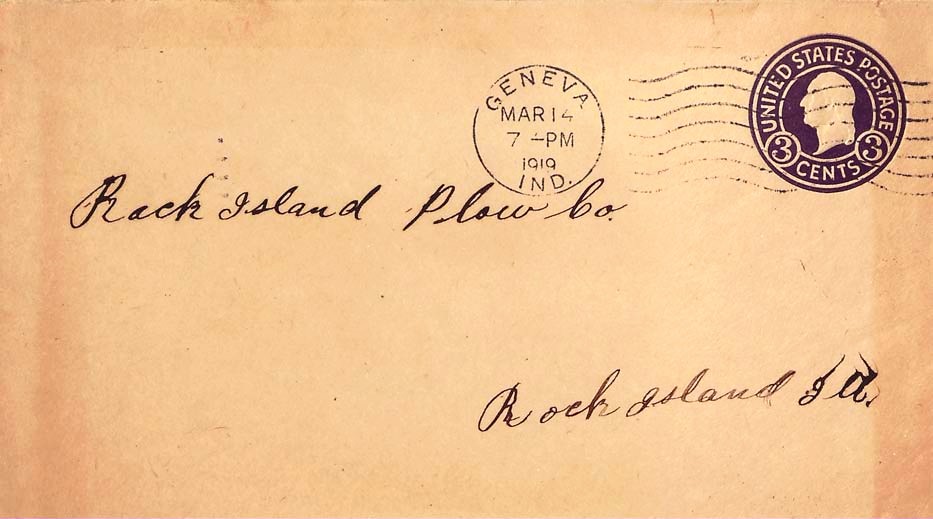 GENEVA
MAR 14
7 - PM
1919
IND.
UNITED STATES POSTAGE
3 CENTS 3
Rock Island Plow Co.
Rock Island Ill.